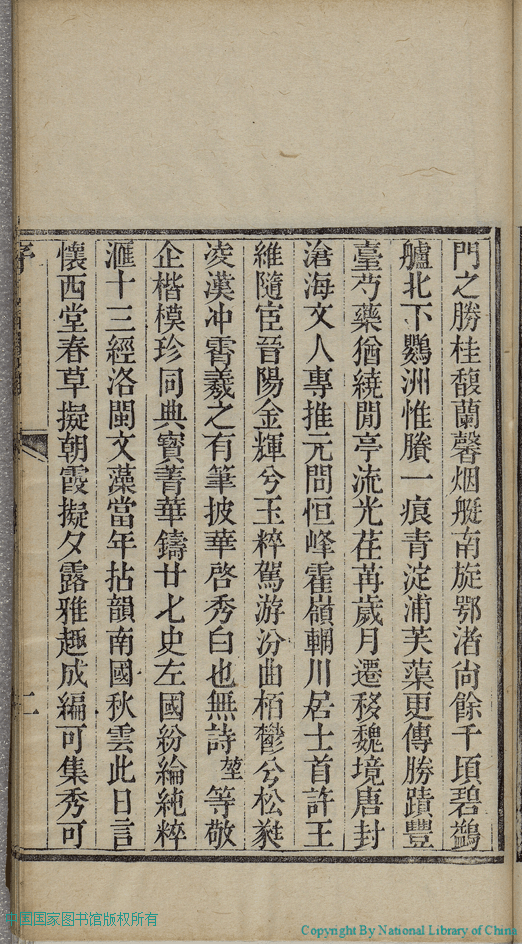 門之勝桂馥蘭馨烟艇南旋鄂渚尙餘千頃碧鷁
艫北下鸚洲惟賸一痕青淀浦芙蕖更傳勝蹟豐
臺芍藥猶繞閒亭流光荏苒歲月遷移魏境唐封
滄海文人專推元問恒峰霍嶺輞川居士首許王
維隨宦晉陽金輝兮玉粹駕游汾曲栢鬱兮松蕤
凌漢冲霄羲之有筆披華啓秀白也無詩堃等敬
企楷模珍同典寶菁華鑄廿七史左國紛綸純粹
滙十三經洛閩文藻當年拈韻南國秋雲此日言
懷西堂春草擬朝霞擬夕露雅趣成編可集秀可
序
二
中国国家图书馆版权所有
Copyright By National Library of China